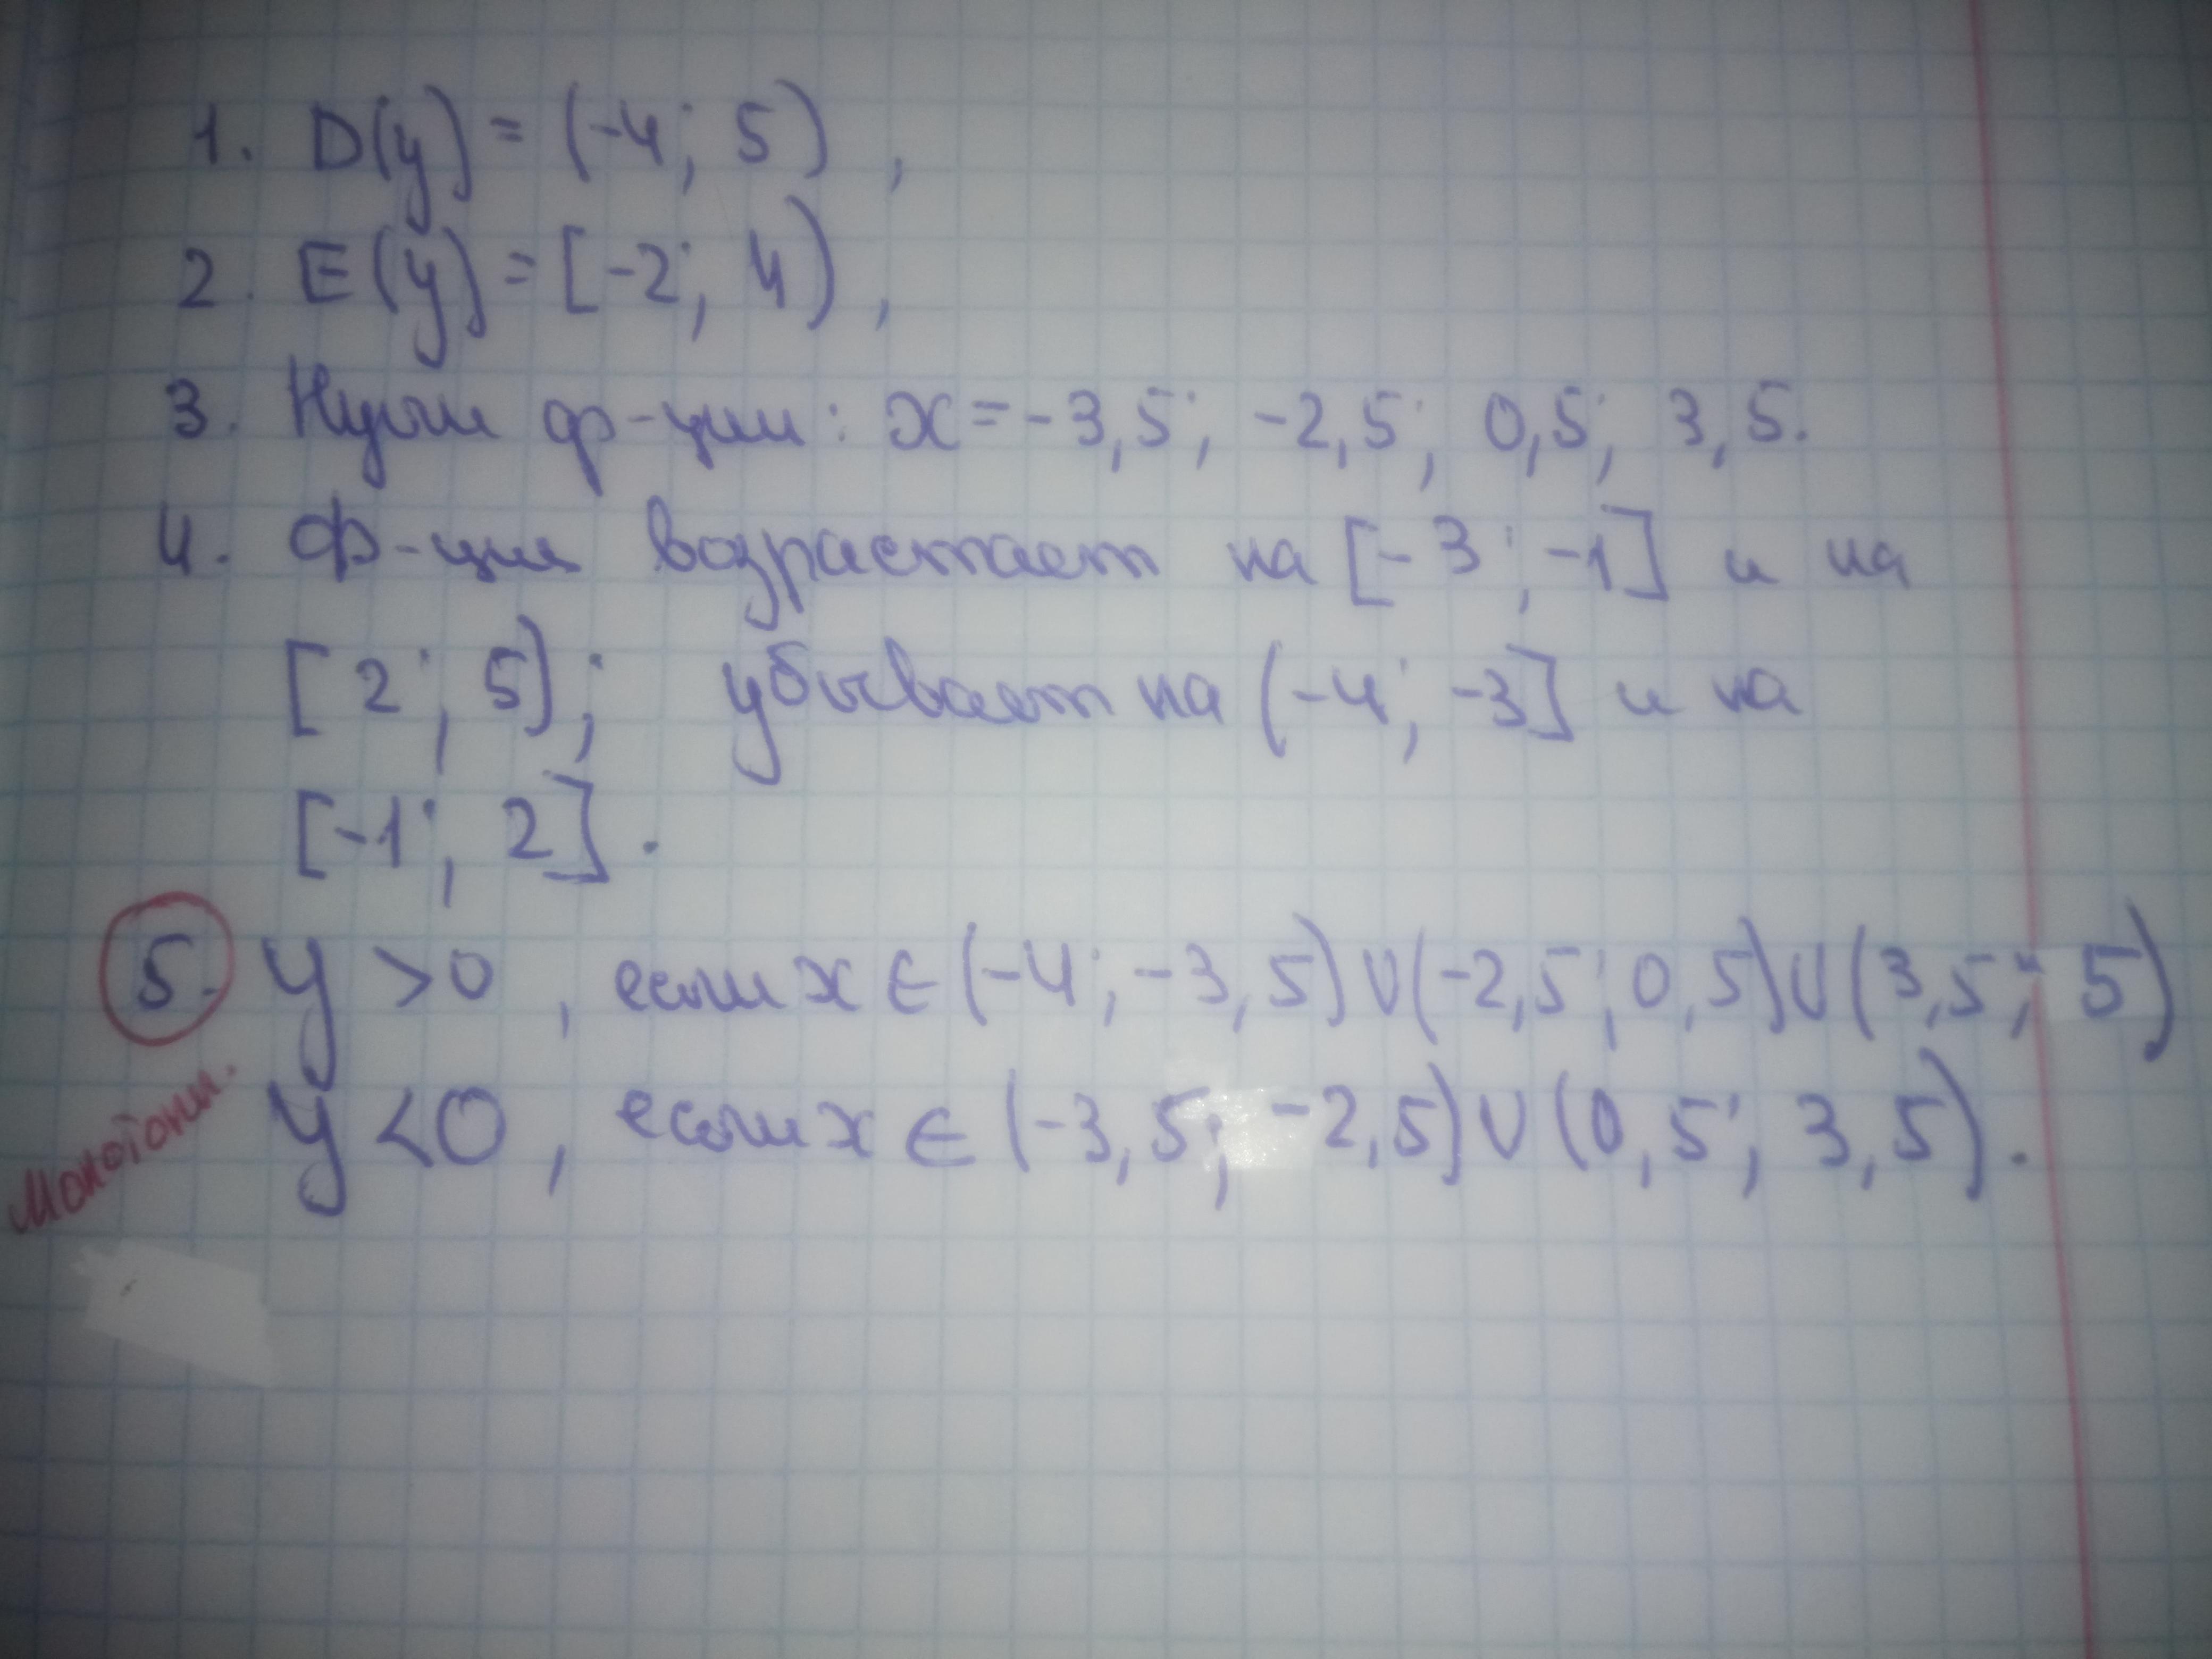 1. D(y) = (-4; 5),
2. E(y) = [-2; 4),
3. Нули ф-ции: x = -3,5; -2,5; 0,5; 3,5.
4. Ф-ция возрастает на [-3; -1] и на
[2; 5); убывает на (-4; -3] и на
[-1; 2].
5. y > 0, если x ∈ (-4; -3,5) ∪ (-2,5; 0,5) ∪ (3,5; 5)
y < 0, если x ∈ (-3,5; -2,5) ∪ (0,5; 3,5).
Монотонн.